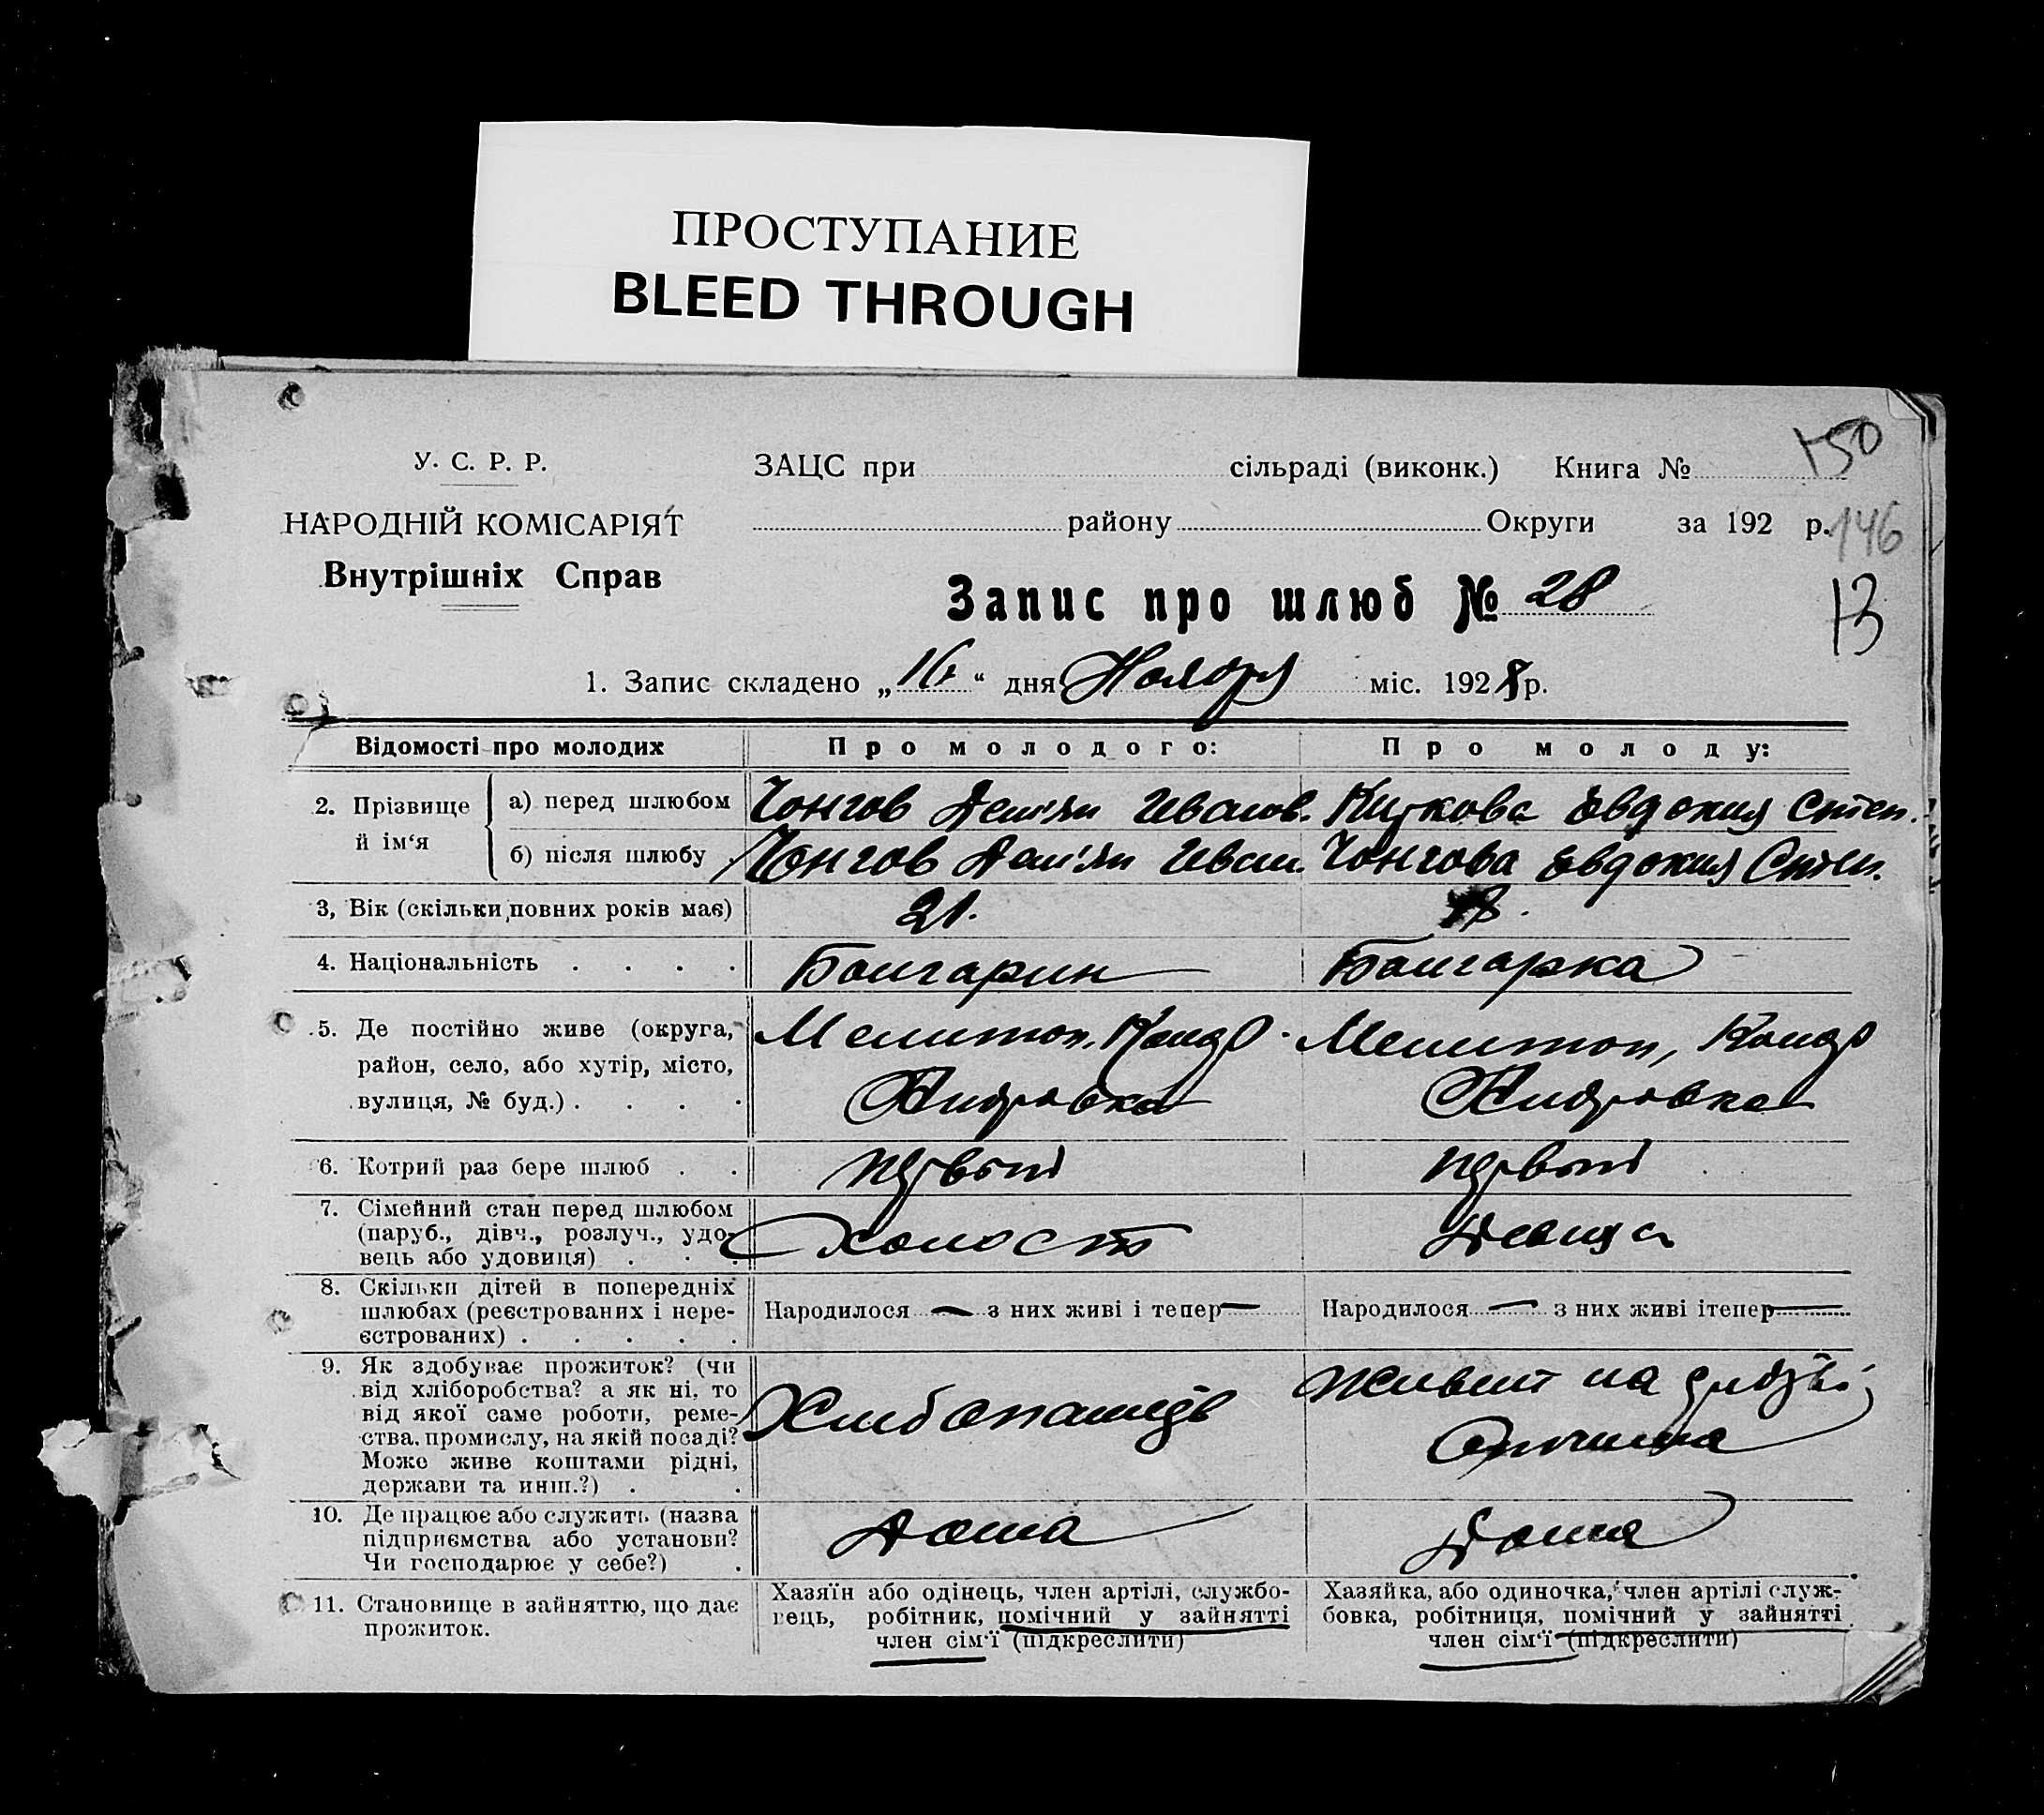 ПРОСТУПАНИЕ
BLEED THROUGH
У. С. Р. Р.
НАРОДНІЙ КОМІСАРІЯТ
Внутрішніх Справ
ЗАЦС при сільраді (виконк.) Книга № 150
району Округи за 192 р. 146
Запис про шлюб № 28
13
1. Запис складено „16“ дня Ноября міс. 1928 р.
Відомості про молодих
Про молодого:
Про молоду:
2. Прізвище й ім‘я
а) перед шлюбом
Чонгов Демян Иванов.
Евдокия Степ.
б) після шлюбу
Чонгов Демян Иван.
Чонгова Евдокия Степ.
3, Вік (скільки повних років має)
21.
18.
4. Національність . . . .
Болгарин
Болгарка
5. Де постійно живе (округа,
район, село, або хутір, місто,
вулиця, № буд.) . . . .
Мелитоп.
Мелитоп,
6. Котрий раз бере шлюб . .
первый
первый
7. Сімейний стан перед шлюбом
(паруб., дівч., розлуч., удо-
вець або удовиця) . . .
Холост
Девица
8. Скільки дітей в попередніх
шлюбах (реєстрованих і нере-
єстрованих) . . . . .
Народилося — з них живі і тепер —
Народилося — з них живі ітепер —
9. Як здобуває прожиток? (чи
від хліборобства? а як ні, то
від якої саме роботи, реме-
ства, промислу, на якій посаді?
Може живе коштами рідні,
держави та инш.?) . .
Хлебопашец
на
10. Де працює або служить (назва
підприємства або установи?
Чи господарює у себе?) .
Дома
Дома
11. Становище в зайняттю, що дає
прожиток.
Хазяїн або одінець, член артілі, службо-
вець, робітник, помічний у зайнятті
член сім‘ї (підкреслити)
Хазяйка, або одиночка, член артілі служ-
бовка, робітниця, помічний у зайнятті
член сім‘ї (підкреслити)